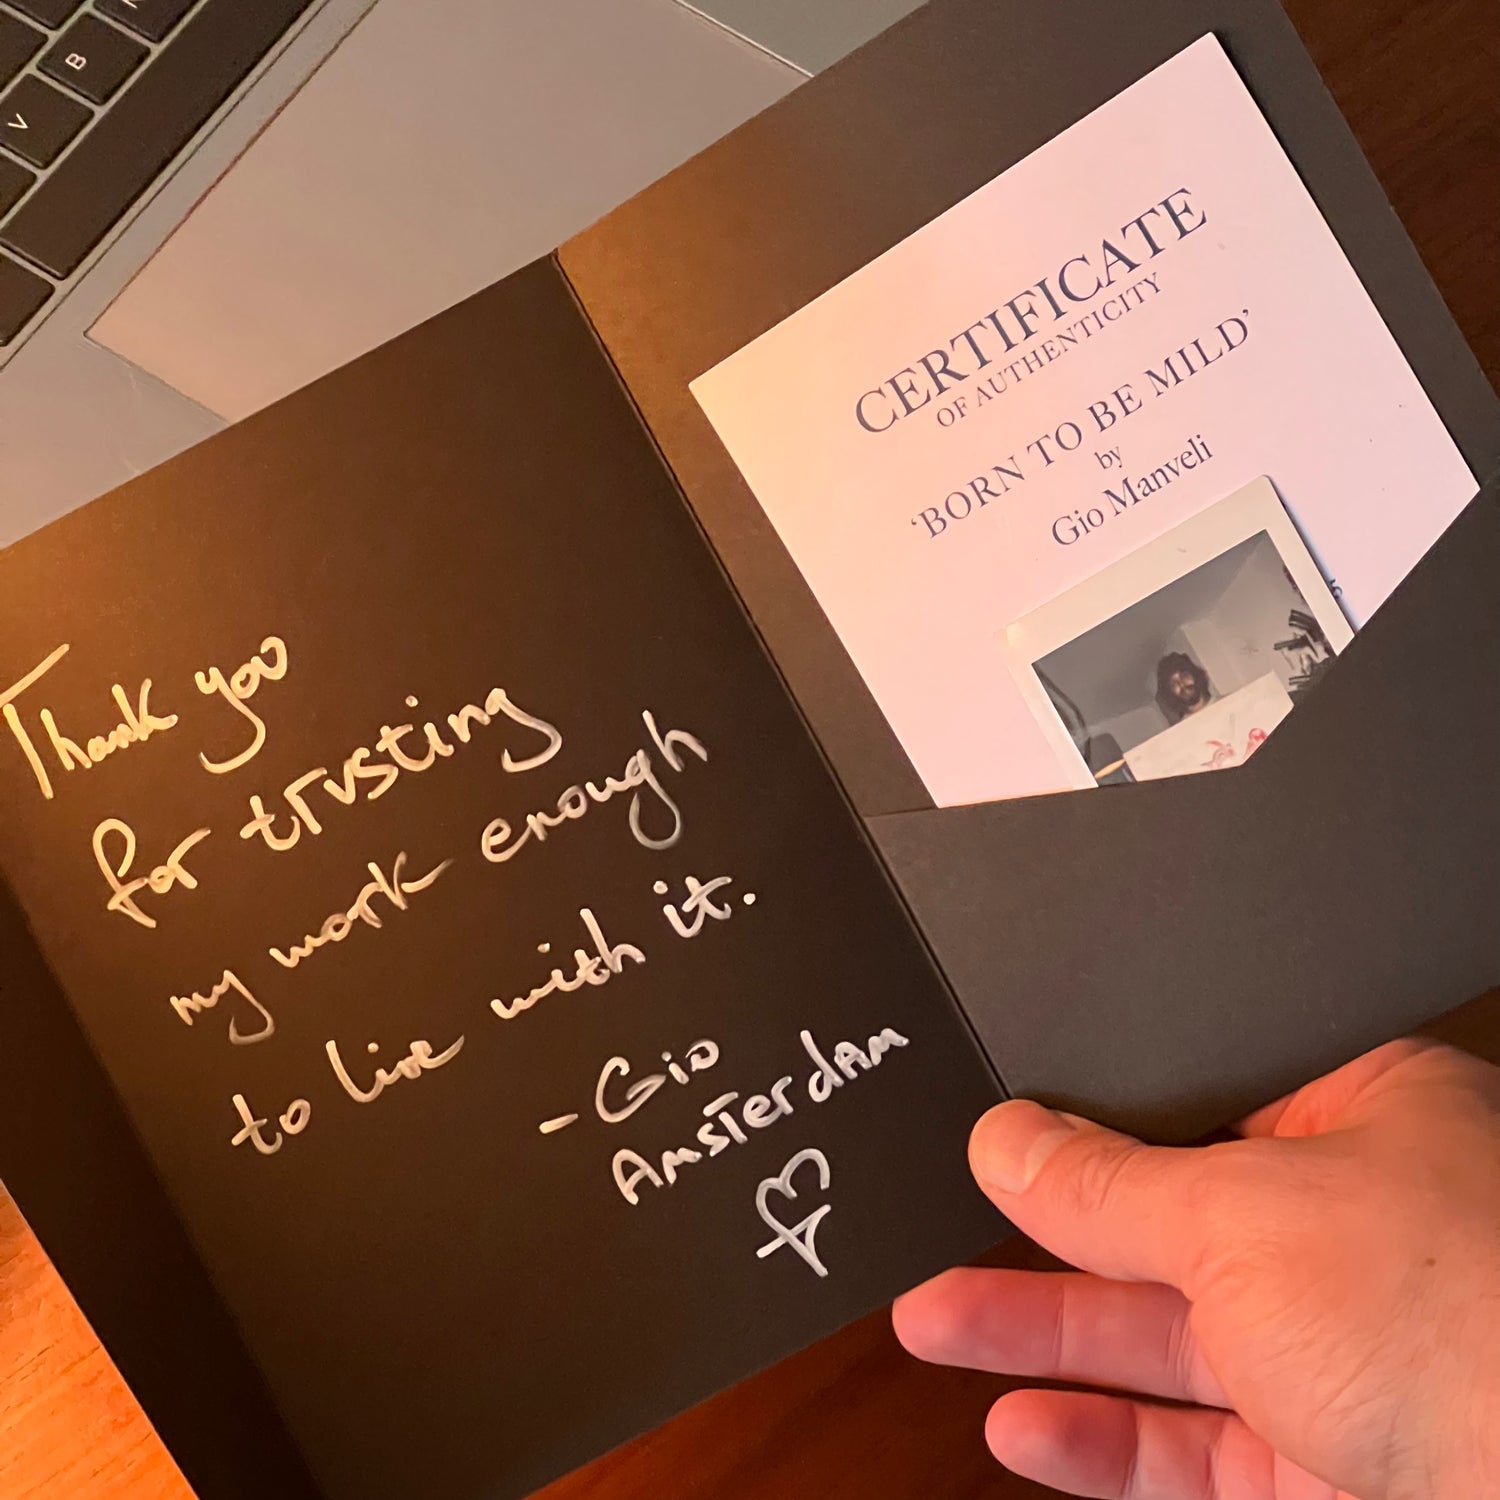 B
V
Thank you
for trusting
my work enough
to live with it.
- Gio
Amsterdam
CERTIFICATE
OF AUTHENTICITY
‘BORN TO BE MILD’
by
Gio Manveli